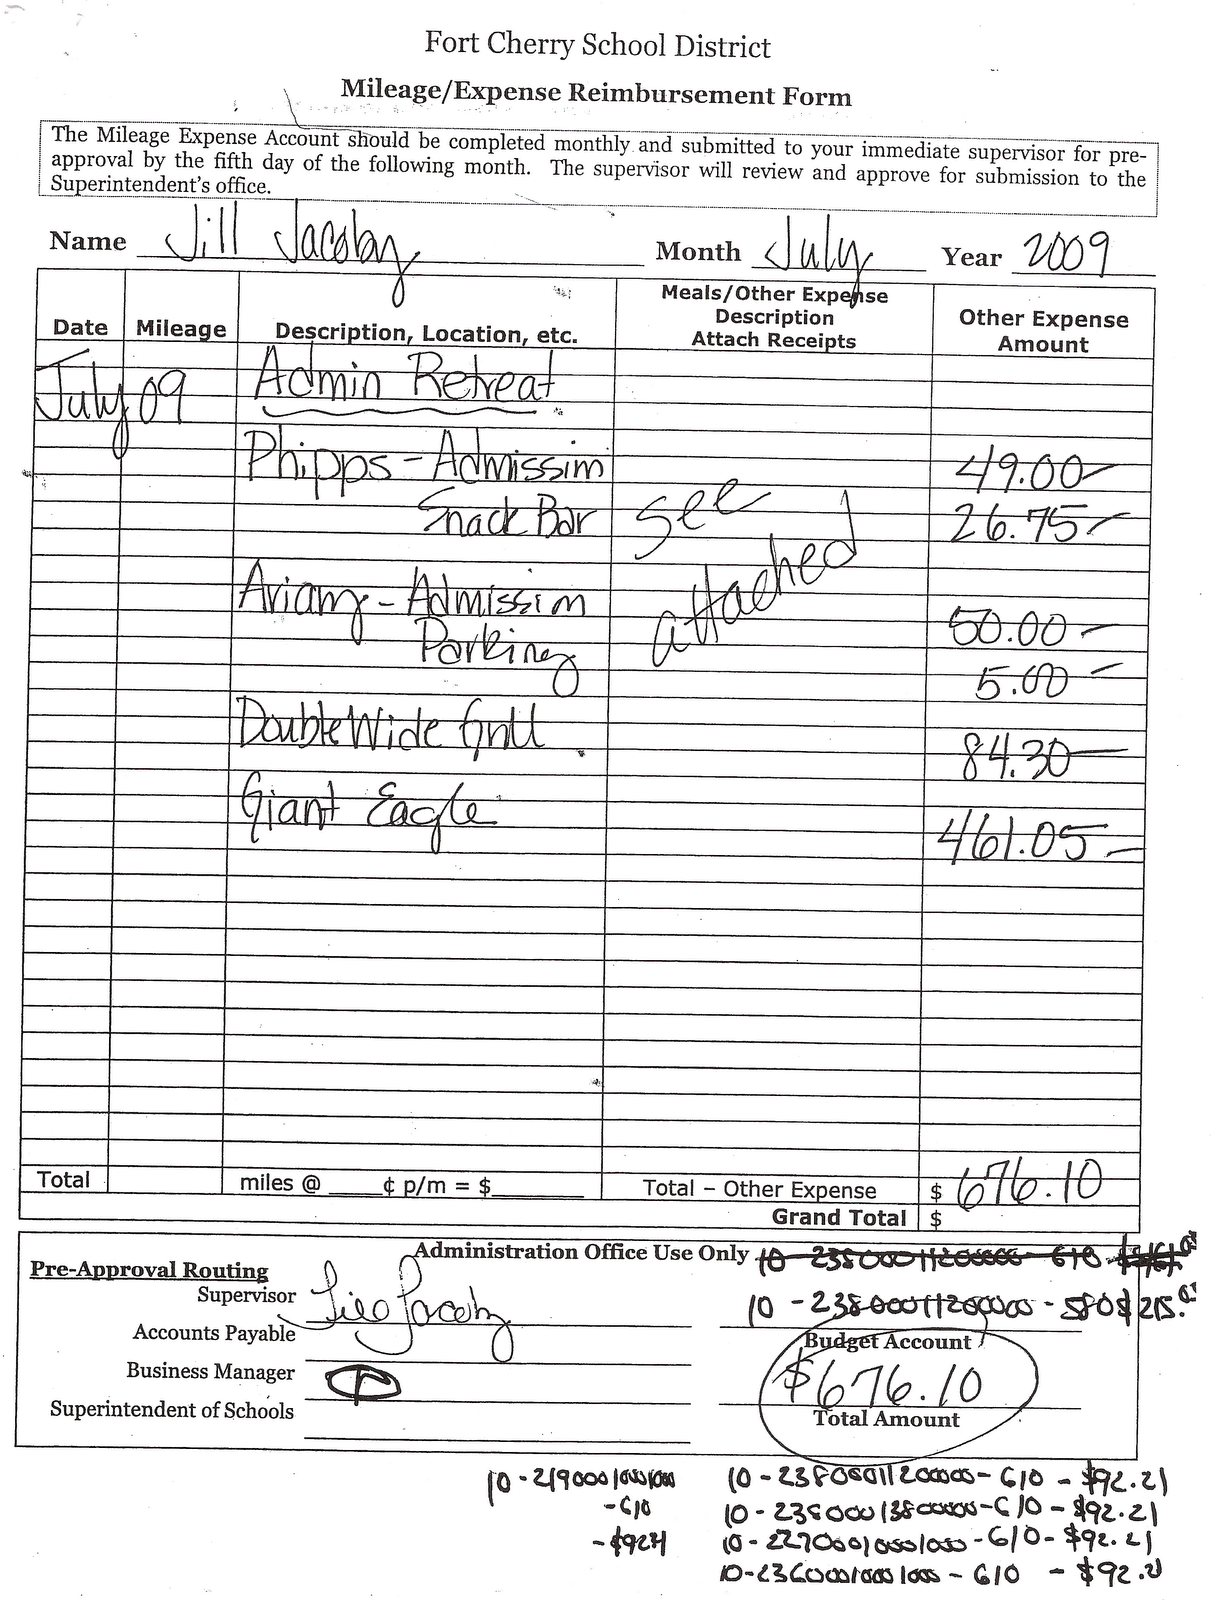 Fort Cherry School District
Mileage/Expense Reimbursement Form
The Mileage Expense Account should be completed monthly and submitted to your immediate supervisor for pre-
approval by the fifth day of the following month. The supervisor will review and approve for submission to the
Superintendent's office.
Name Jill Jacoby Month July Year 2009
Date Mileage Description, Location, etc. Meals/Other Expense Description Attach Receipts Other Expense Amount
July 09 Admin Retreat
Phipps - Admission 49.00
Snack Bar see 26.75
Aviary - Admission attached 50.00
Parking 5.00
DoubleWide Grill 84.30
Giant Eagle 461.05
Total miles @ ____¢ p/m = $________ Total – Other Expense $ 676.10
Grand Total $
Administration Office Use Only
Pre-Approval Routing
Supervisor Jill Jacoby
Accounts Payable
Budget Account
Business Manager $676.10
Superintendent of Schools Total Amount
-610 - $92.21
-610
-610 - $92.21
-610 - $92.21
-610 - $92.21